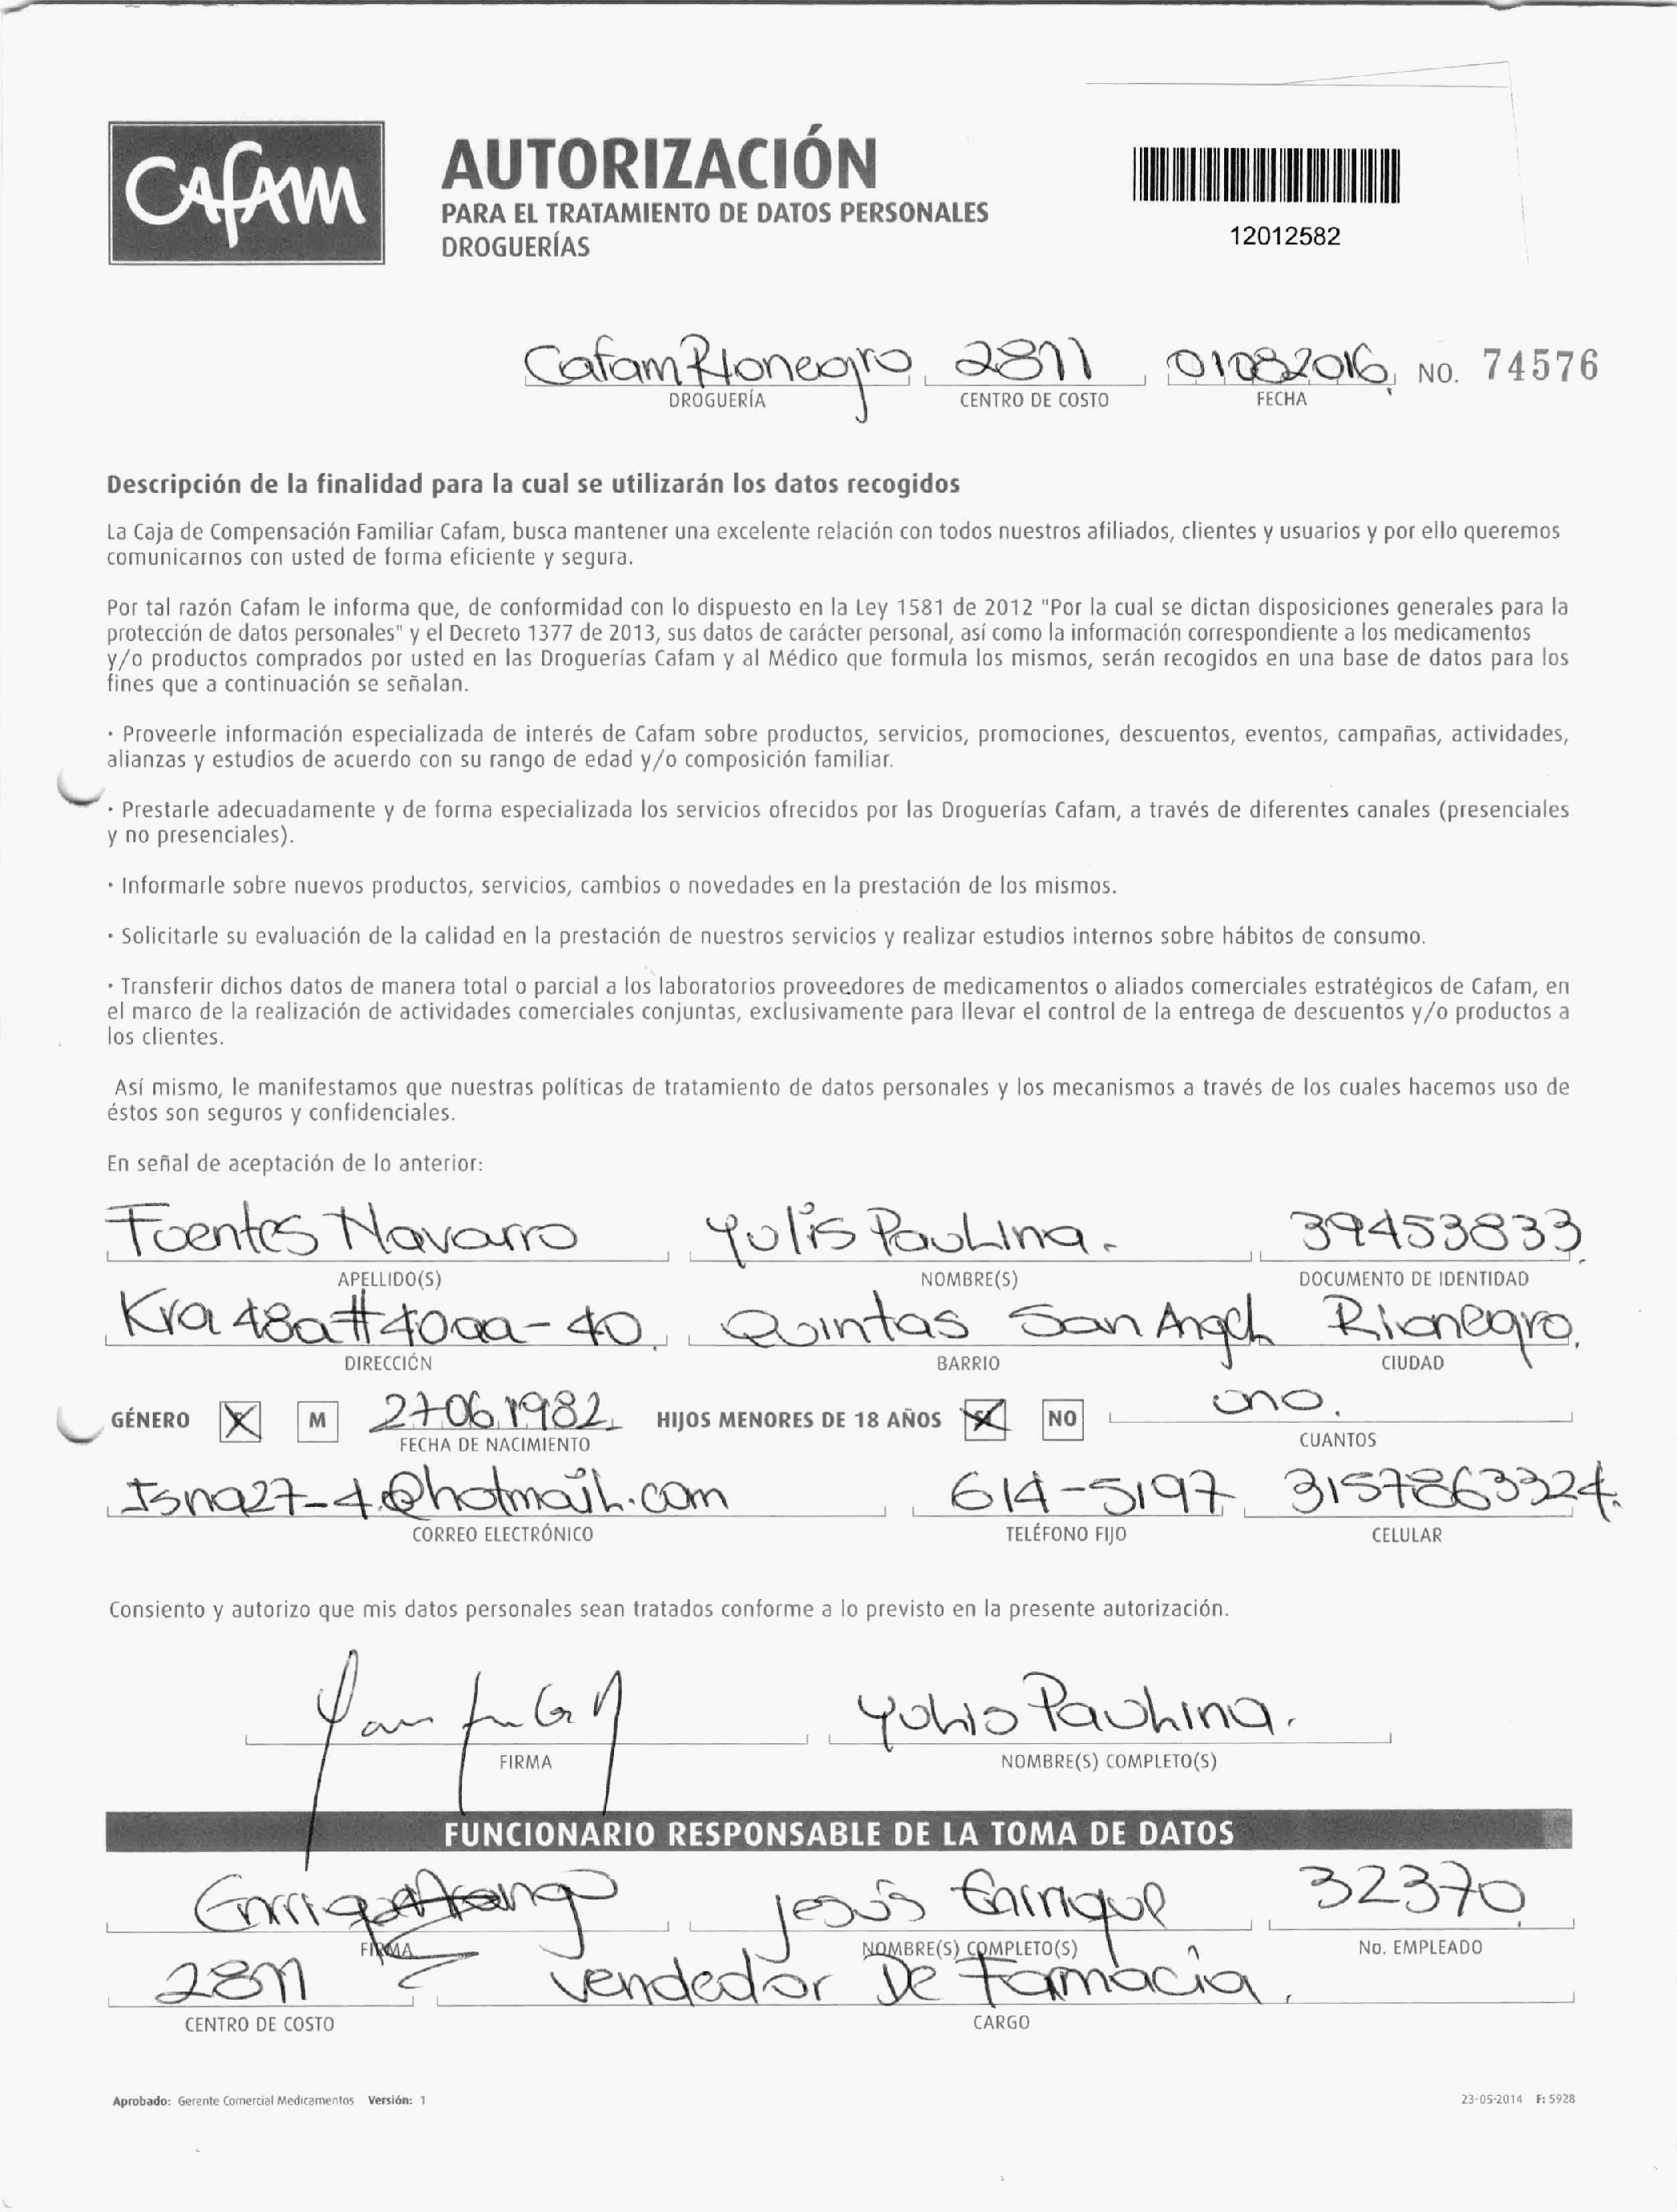 CAFAM
AUTORIZACIÓN
PARA EL TRATAMIENTO DE DATOS PERSONALES
DROGUERÍAS
12012582
Cafam RIonegro 2811 01082016 NO. 74576
DROGUERÍA CENTRO DE COSTO FECHA
Descripción de la finalidad para la cual se utilizarán los datos recogidos
La Caja de Compensación Familiar Cafam, busca mantener una excelente relación con todos nuestros afiliados, clientes y usuarios y por ello queremos
comunicarnos con usted de forma eficiente y segura.
Por tal razón Cafam le informa que, de conformidad con lo dispuesto en la Ley 1581 de 2012 "Por la cual se dictan disposiciones generales para la
protección de datos personales" y el Decreto 1377 de 2013, sus datos de carácter personal, así como la información correspondiente a los medicamentos
y/o productos comprados por usted en las Droguerías Cafam y al Médico que formula los mismos, serán recogidos en una base de datos para los
fines que a continuación se señalan.
· Proveerle información especializada de interés de Cafam sobre productos, servicios, promociones, descuentos, eventos, campañas, actividades,
alianzas y estudios de acuerdo con su rango de edad y/o composición familiar.
· Prestarle adecuadamente y de forma especializada los servicios ofrecidos por las Droguerías Cafam, a través de diferentes canales (presenciales
y no presenciales).
· Informarle sobre nuevos productos, servicios, cambios o novedades en la prestación de los mismos.
· Solicitarle su evaluación de la calidad en la prestación de nuestros servicios y realizar estudios internos sobre hábitos de consumo.
· Transferir dichos datos de manera total o parcial a los laboratorios proveedores de medicamentos o aliados comerciales estratégicos de Cafam, en
el marco de la realización de actividades comerciales conjuntas, exclusivamente para llevar el control de la entrega de descuentos y/o productos a
los clientes.
Así mismo, le manifestamos que nuestras políticas de tratamiento de datos personales y los mecanismos a través de los cuales hacemos uso de
éstos son seguros y confidenciales.
En señal de aceptación de lo anterior:
Fuentes Navarro Yulis Paulina. 39453833
APELLIDO(S) NOMBRE(S) DOCUMENTO DE IDENTIDAD
Kra 48a # 40aa-40 Quintas San Angel Rionegro.
DIRECCIÓN BARRIO CIUDAD
GÉNERO F M 27061982 HIJOS MENORES DE 18 AÑOS SI NO uno.
FECHA DE NACIMIENTO CUANTOS
Isna27-4@hotmail.com 614-5197 3157863324.
CORREO ELECTRÓNICO TELÉFONO FIJO CELULAR
Consiento y autorizo que mis datos personales sean tratados conforme a lo previsto en la presente autorización.
Yulis Paulina.
FIRMA NOMBRE(S) COMPLETO(S)
FUNCIONARIO RESPONSABLE DE LA TOMA DE DATOS
Jesús Enrique 32370
FIRMA NOMBRE(S) COMPLETO(S) No. EMPLEADO
2811 Vendedor De Farmacia.
CENTRO DE COSTO CARGO
Aprobado: Gerente Comercial Medicamentos Versión: 1 23-05-2014 F: 5928